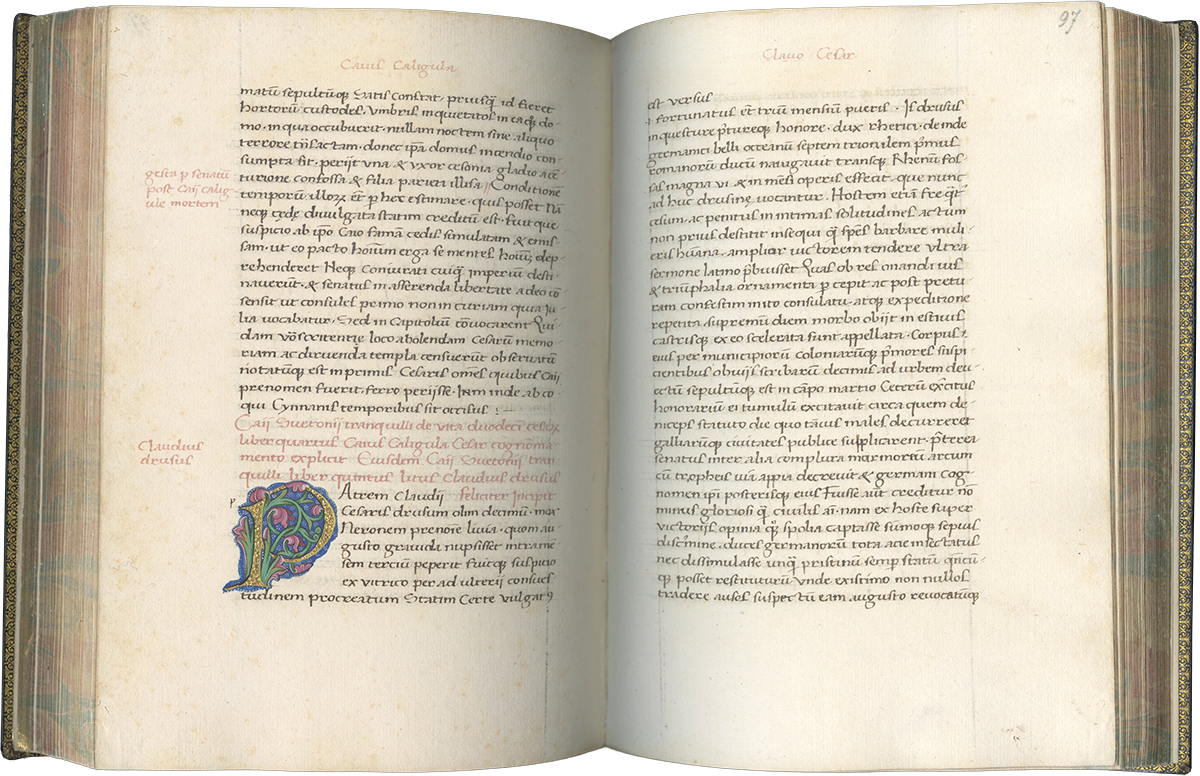 Caius Caligula
matū sepultūqꝫ Satis constat, priusq̄ id fieret
hortorū custodes, Vmbris inquietatos in ea qꝫ do-
mo, in qua occubuerit, nullam noctem sine aliquo
terrore trāsactam, donec ip̄a domus incendio con-
sumpta sit, perijt vna & vxor cesonia gladio a cen
turione confossa & filia parieti illisa Conditionē
temporum illoꝝ etiā p hex estimare, quis posset Nā
neqꝫ cede divulgata statim creditū est. fuit que
suspicio ab ipō Caio famā cedis simulatam & emis-
sam, ut eo pacto hoīum erga se mentes, dep-
rehenderet Neqꝫ Coniurati cuiq̄ imperiū desti
naverūt, & senatus in asserenda libertate adeo cō
sensit ut consules primo non in curiam quia Iu-
lia vocabatur, Sed in Capitoliū cōvocarent Qui
dam vō sententie, loco abolendam Cesarū memo
riam ac diruenda templa censuerūt observatū
notatūqꝫ est in primis Cesaris omēs quibus Caij
prenomen fuerit, ferro perijsse. Iam inde ab eo
qui Cynnanis temporibus sit occisus
gesta p senatū
post Caij calig-
ule mortem
Caij Suetonij tranquilli de vita duodeci cesaꝝ
liber quartus Caius Caligula Cesar cognomi
mento explicit Eiusdem Caij Suetonij tran
quilli liber quintus, titus Claudius drusus
feliciter incipit
Claudius
drusus
p
PAtrem Claudij
Cesaris drusum olim decimū, mox
Neronem prenoīe livia, quom au-
gusto gravida nupsisset intra mē
sem terciū peperit fuitqꝫ suspicio
ex vitrico per adulterij consue
tudinem procreatum Statim Certe vulgatꝰ
97
Clauo Cesar
est versus
fortunatus et triū mensiū pueris. Is drusus
in questure p̄tureqꝫ honore, dux rhetici, deinde
germanici belli oceanū septemtrionalem p̄mus
romanorū ducū navigavit transqꝫ Rhenū fos-
sas magna vi & inmēsi operis effecit que nunc
ad huc drusine vocantur. Hostem etiā freq̄ter
cesum, ac penitus in intimas solitudines actum
non prius destitit insequi q̄ spēs barbare muli-
eris hūana, amplior victorem tendere vltra
sermone latino p̄hibuisset Quas ob res ovandi ius
& triūphalia ornamenta p cepit ac post pretu
ram confestim inito consulatu, atqꝫ expeditione
repetita, supremū diem morbo obijt in estivis
castris qꝫ ex eo scelerata sunt appellata. Corpus
eius per municipiorū coloniarūqꝫ p̄mores suspi
cientibus obvijs scribarū decurijs ad urbem deu-
ectū sepultūqꝫ est in cāpo martio Ceterū ex̄citus
honorariū ei tumulū excitavit circa quem de-
niceps statuto die quotānis miles decurreret
galliarūqꝫ civitates publice supplicarent, p̄terea
senatus inter alia complura marmoreū arcum
cū tropheis via appia decrevit & germani Cog-
nomen ipī posterisqꝫ eius Fuisse aut creditur nō
minus gloriosi q̄ civilis aī. nam ex hoste super
victorijs, opinia qꝫ spolia captasse sumoqꝫ sepius
discrimine, duces germanorū tota acie insectatus
nec dissimulasse unq̄ pristinū semp statū qn̄cū-
qꝫ posset restituturū vnde existimo non nullos
tradere ausos suspectū eam augusto revocatūqꝫ